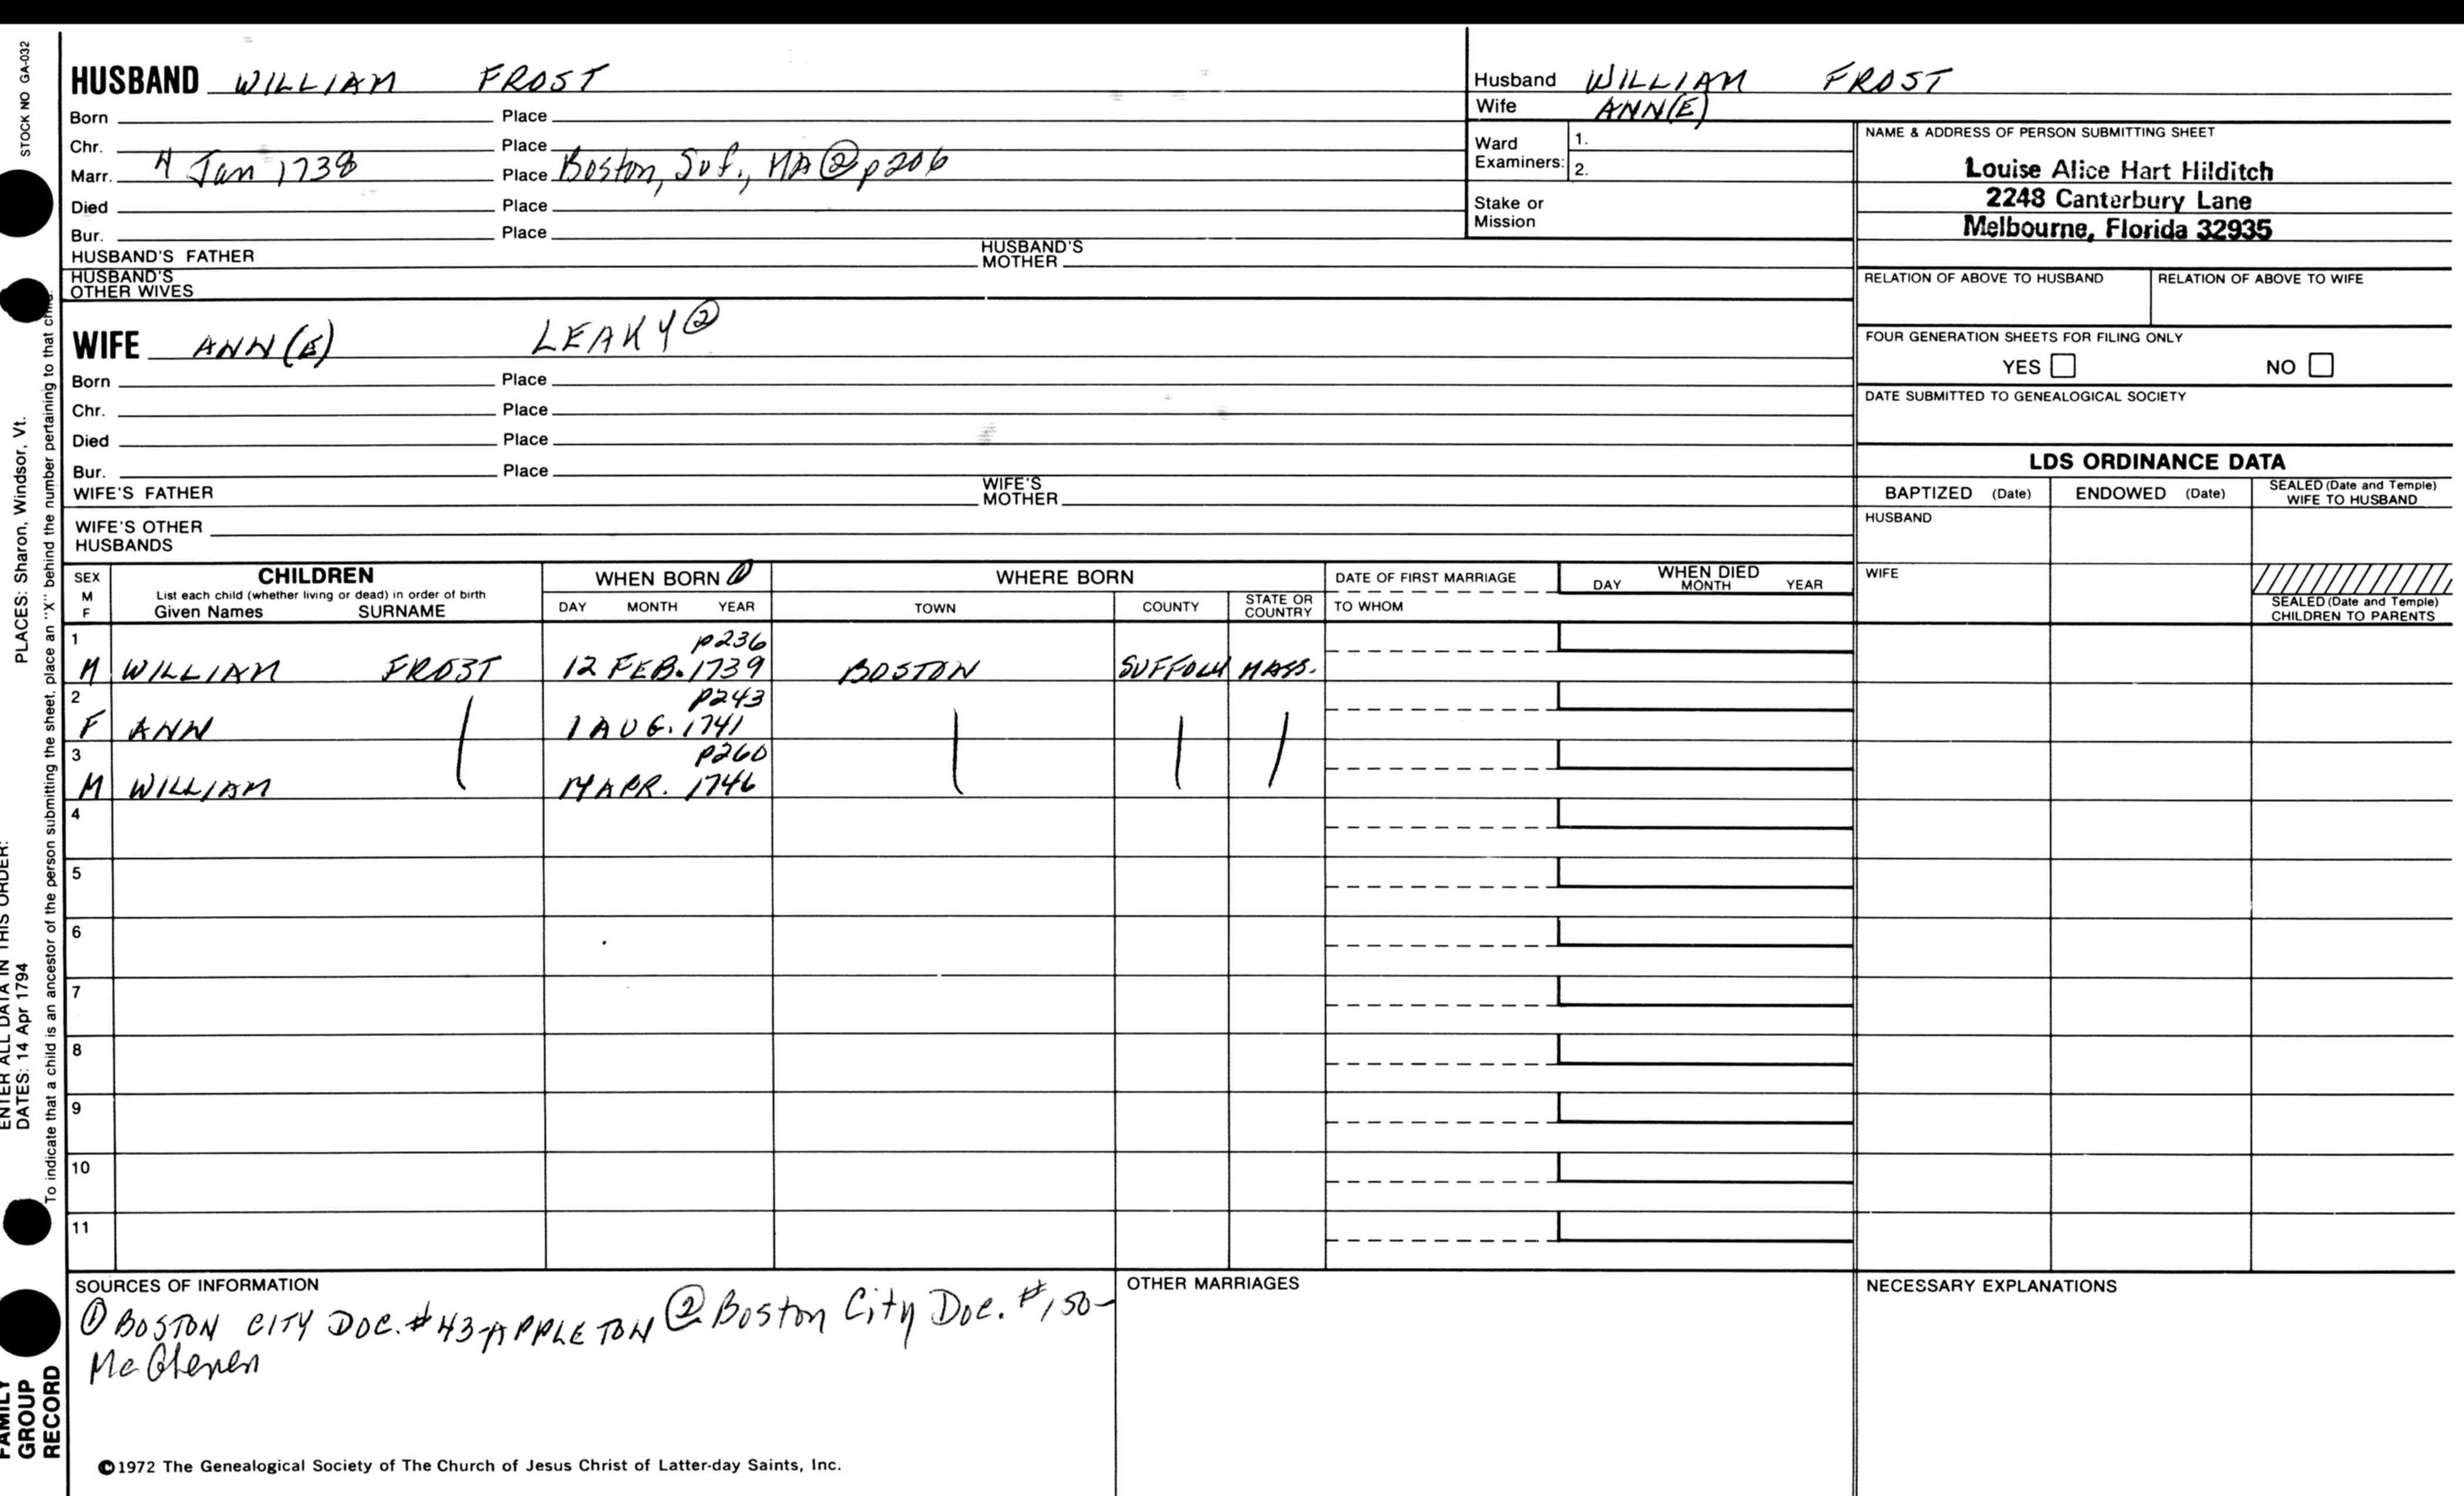 STOCK NO GA-032
PLACES: Sharon, Windsor, Vt.
ENTER ALL DATA IN THIS ORDER:
DATES: 14 Apr 1794
To indicate that a child is an ancestor of the person submitting the sheet, place an "X" behind the number pertaining to that child.
FAMILY
GROUP
RECORD
HUSBAND WILLIAM FROST
Born Place
Chr. Place
Marr. 4 Jan 1738 Place Boston, Suf., MA ② p206
Died Place
Bur. Place
HUSBAND'S FATHER HUSBAND'S MOTHER
HUSBAND'S OTHER WIVES
WIFE ANN(E) LEAKY ②
Born Place
Chr. Place
Died Place
Bur. Place
WIFE'S FATHER WIFE'S MOTHER
WIFE'S OTHER HUSBANDS
Husband WILLIAM FROST
Wife ANN(E)
Ward Examiners: 1.
2.
Stake or Mission
NAME & ADDRESS OF PERSON SUBMITTING SHEET
Louise Alice Hart Hilditch
2248 Canterbury Lane
Melbourne, Florida 32935
RELATION OF ABOVE TO HUSBAND RELATION OF ABOVE TO WIFE
FOUR GENERATION SHEETS FOR FILING ONLY
YES NO
DATE SUBMITTED TO GENEALOGICAL SOCIETY
LDS ORDINANCE DATA
BAPTIZED (Date) ENDOWED (Date) SEALED (Date and Temple) WIFE TO HUSBAND
HUSBAND
WIFE
SEALED (Date and Temple) CHILDREN TO PARENTS
SEX M F CHILDREN WHEN BORN ① WHERE BORN DATE OF FIRST MARRIAGE WHEN DIED
List each child (whether living or dead) in order of birth DAY MONTH YEAR
Given Names SURNAME DAY MONTH YEAR TOWN COUNTY STATE OR COUNTRY TO WHOM
1 p236
M WILLIAM FROST 12 FEB. 1739 BOSTON SUFFOLK MASS.
2 p243
F ANN 1 AUG. 1741
3 p260
M WILLIAM 14 APR. 1746
4
5
6
7
8
9
10
11
SOURCES OF INFORMATION
① BOSTON CITY DOC. #43-APPLETON ② Boston City Doc. #150-
McGlenen
OTHER MARRIAGES
NECESSARY EXPLANATIONS
©1972 The Genealogical Society of The Church of Jesus Christ of Latter-day Saints, Inc.